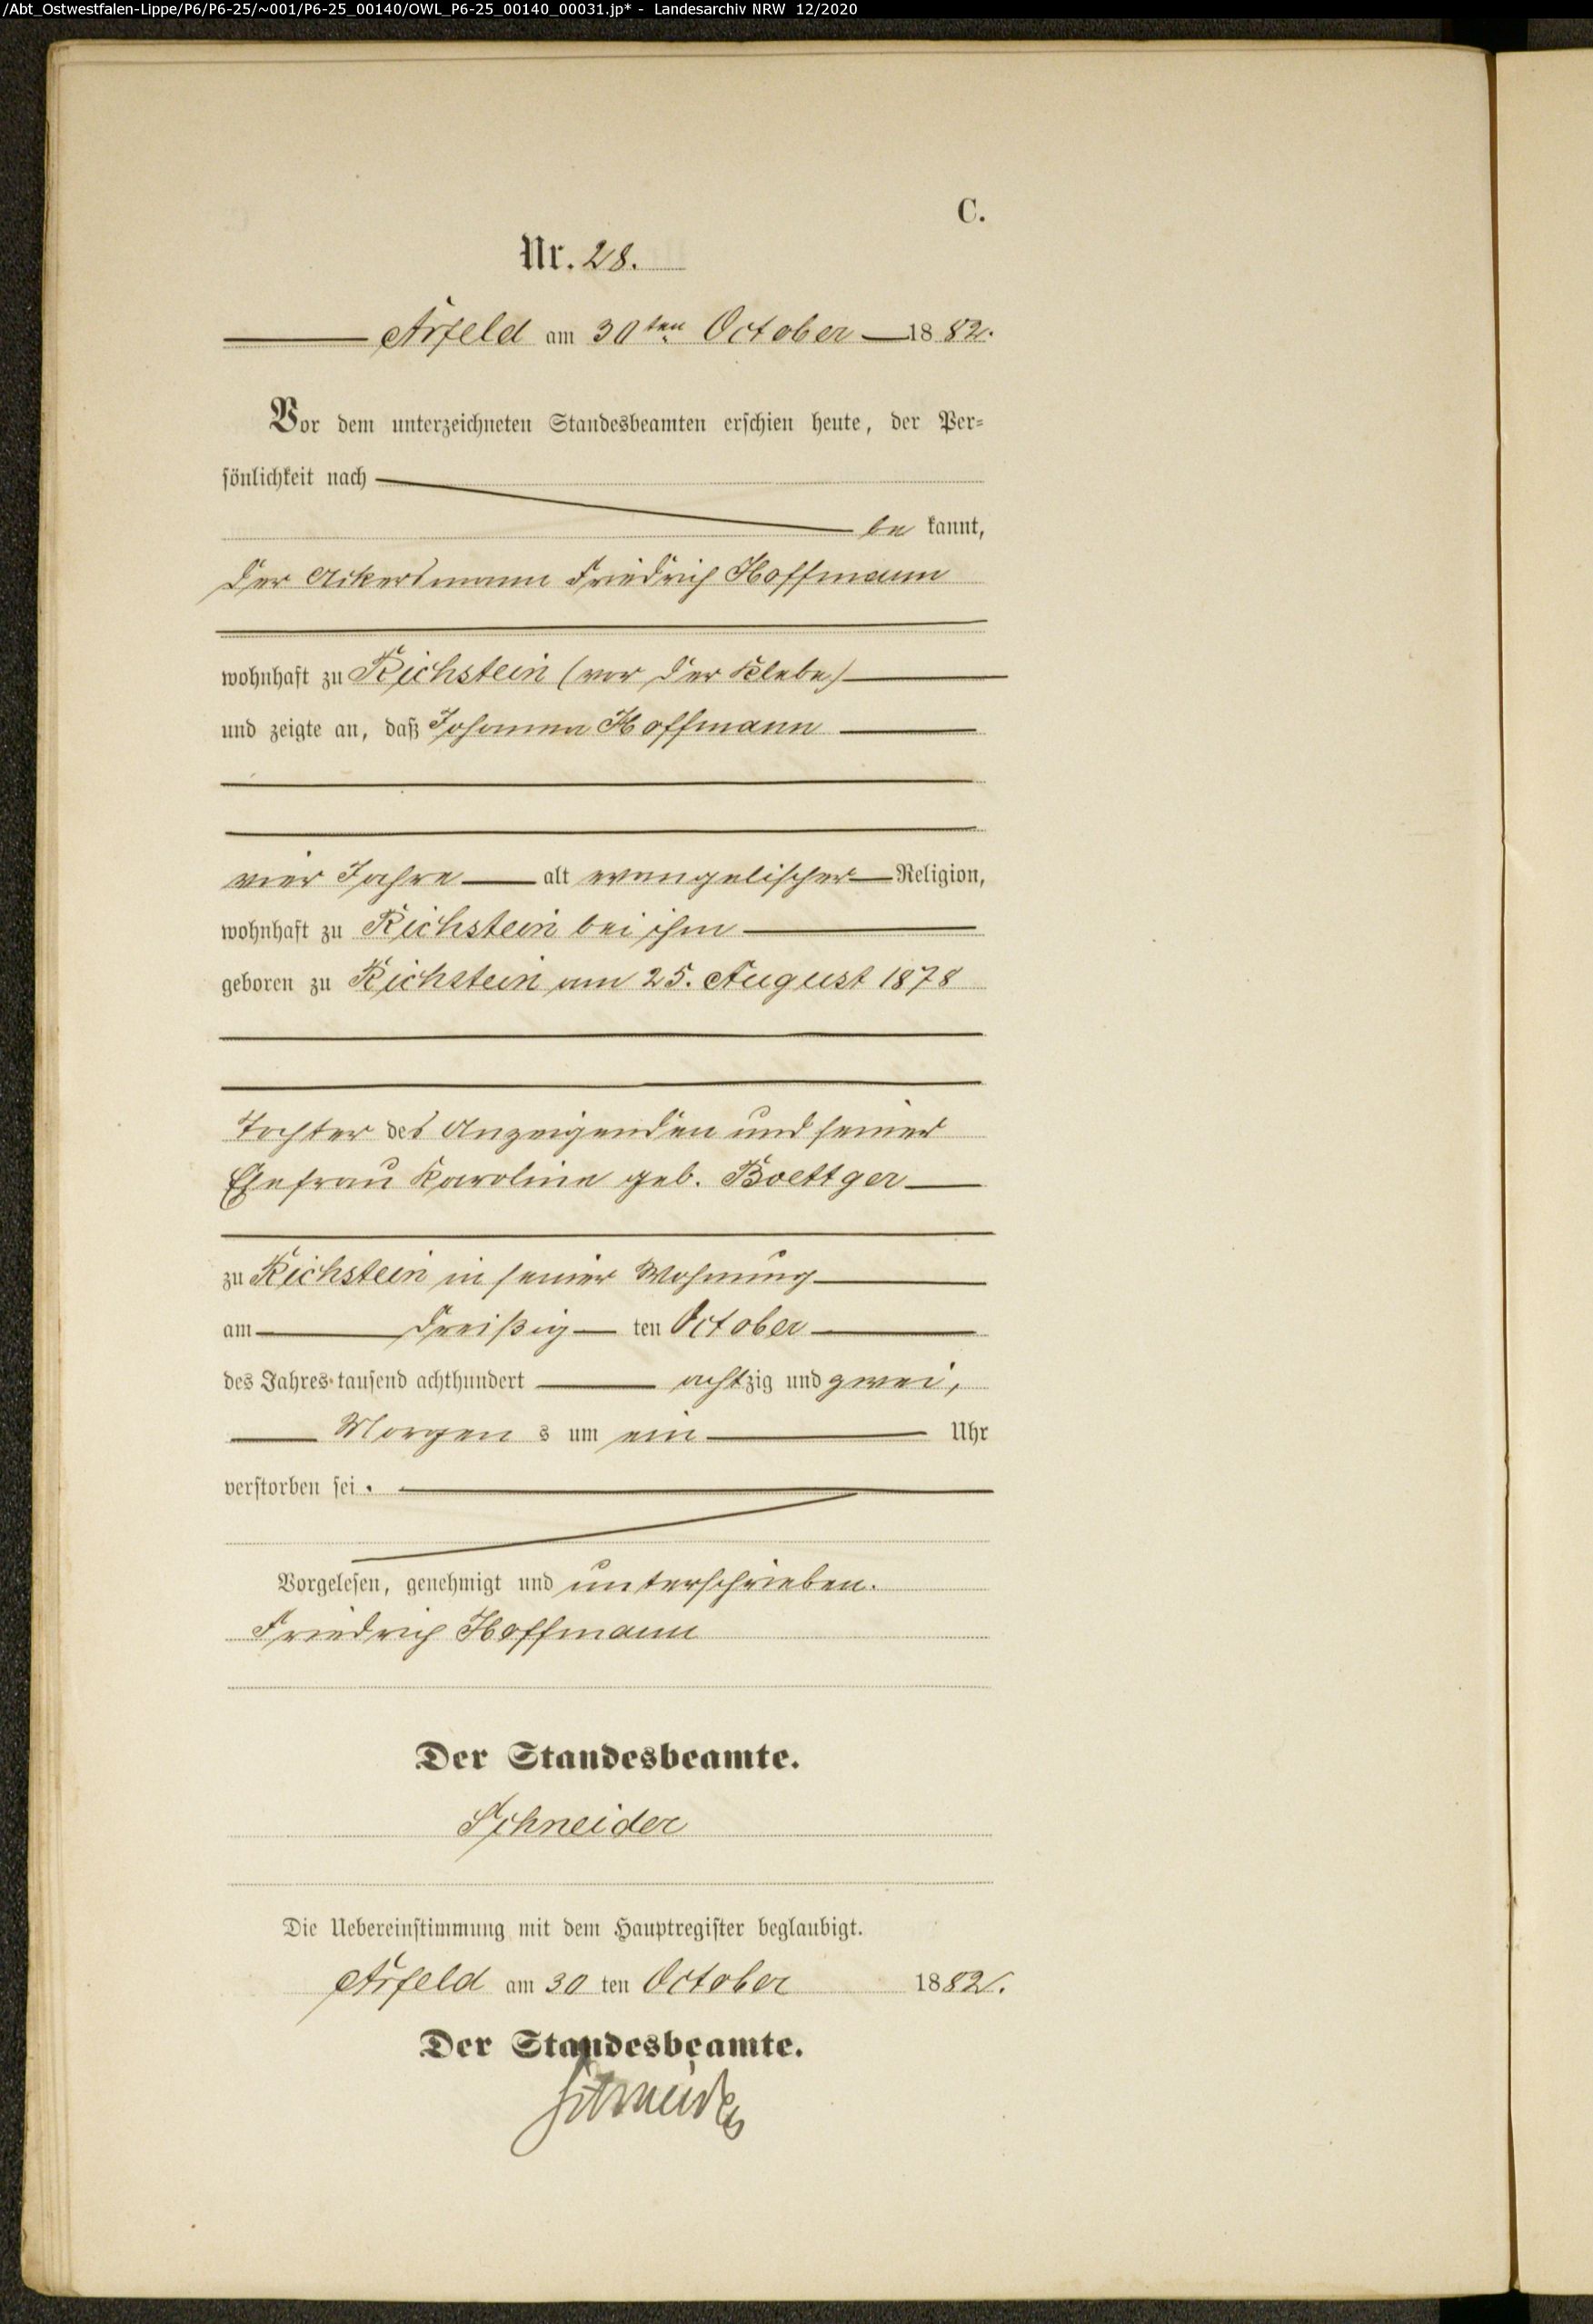 /Abt_Ostwestfalen-Lippe/P6/P6-25/~001/P6-25_00140/OWL_P6-25_00140_00031.jp* - Landesarchiv NRW 12/2020
C.
Nr. 28.
Arfeld am 30ten October 1882.
Vor dem unterzeichneten Standesbeamten erschien heute, der Per-
sönlichkeit nach
be kannt,
der Ackersmann Friedrich Hoffmann
wohnhaft zu Richstein (vor der Klebe)
und zeigte an, daß Johanna Hoffmann
vier Jahre alt evangelischer Religion,
wohnhaft zu Richstein bei ihm
geboren zu Richstein am 25. August 1878
Tochter des Anzeigenden und seiner
Ehefrau Karoline geb. Boettger
zu Richstein in seiner Wohnung
am dreißig ten October
des Jahres tausend achthundert achtzig und zwei,
Morgen s um ein Uhr
verstorben sei.
Vorgelesen, genehmigt und unterschrieben.
Friedrich Hoffmann
Der Standesbeamte.
Schneider
Die Uebereinstimmung mit dem Hauptregister beglaubigt.
Arfeld am 30 ten October 1882.
Der Standesbeamte.
Schneider